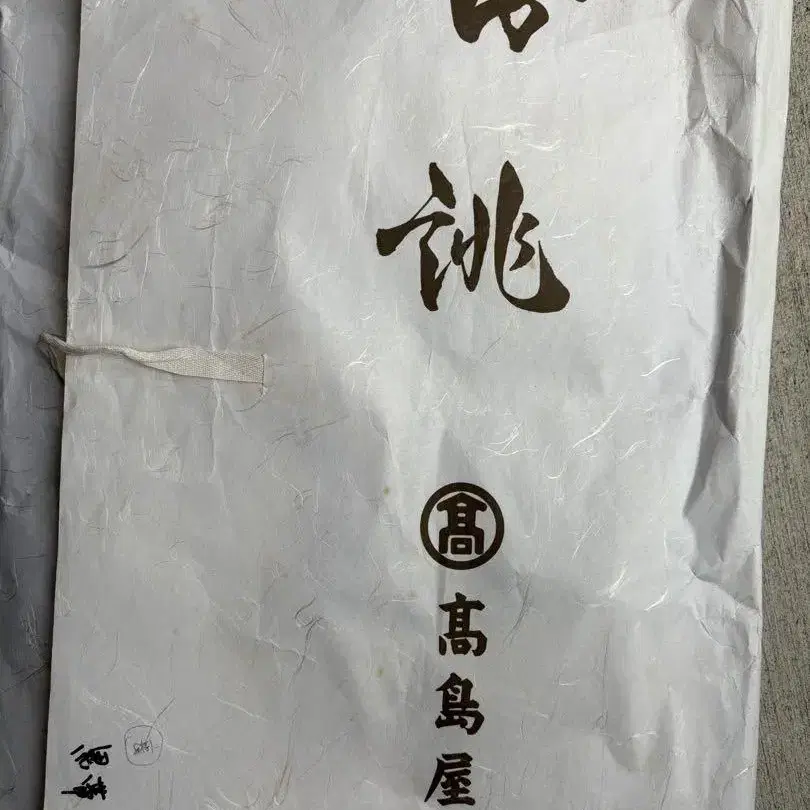 誂
髙
髙島屋